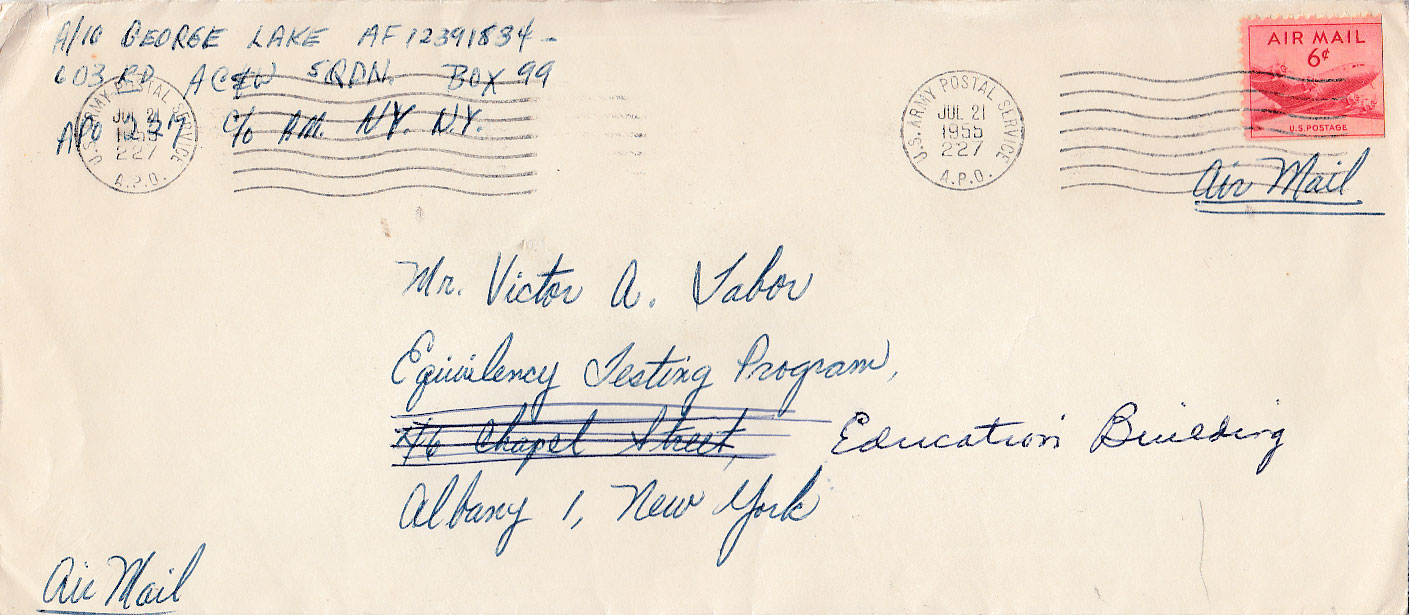 A/1C GEORGE LAKE AF 12391834-
603 RD AC&W SQDN. BOX 99
APO 227 C/O P.M. NY. N.Y.
U.S. ARMY POSTAL SERVICE
JUL 21
1955
227
A.P.O.
U.S. ARMY POSTAL SERVICE
JUL 21
1955
227
A.P.O.
AIR MAIL
6¢
U.S. POSTAGE
Air Mail
Mr. Victor A. Tabor
Equivilency Testing Program,
Chapel Street, Education Building
Albany 1, New York
Air Mail